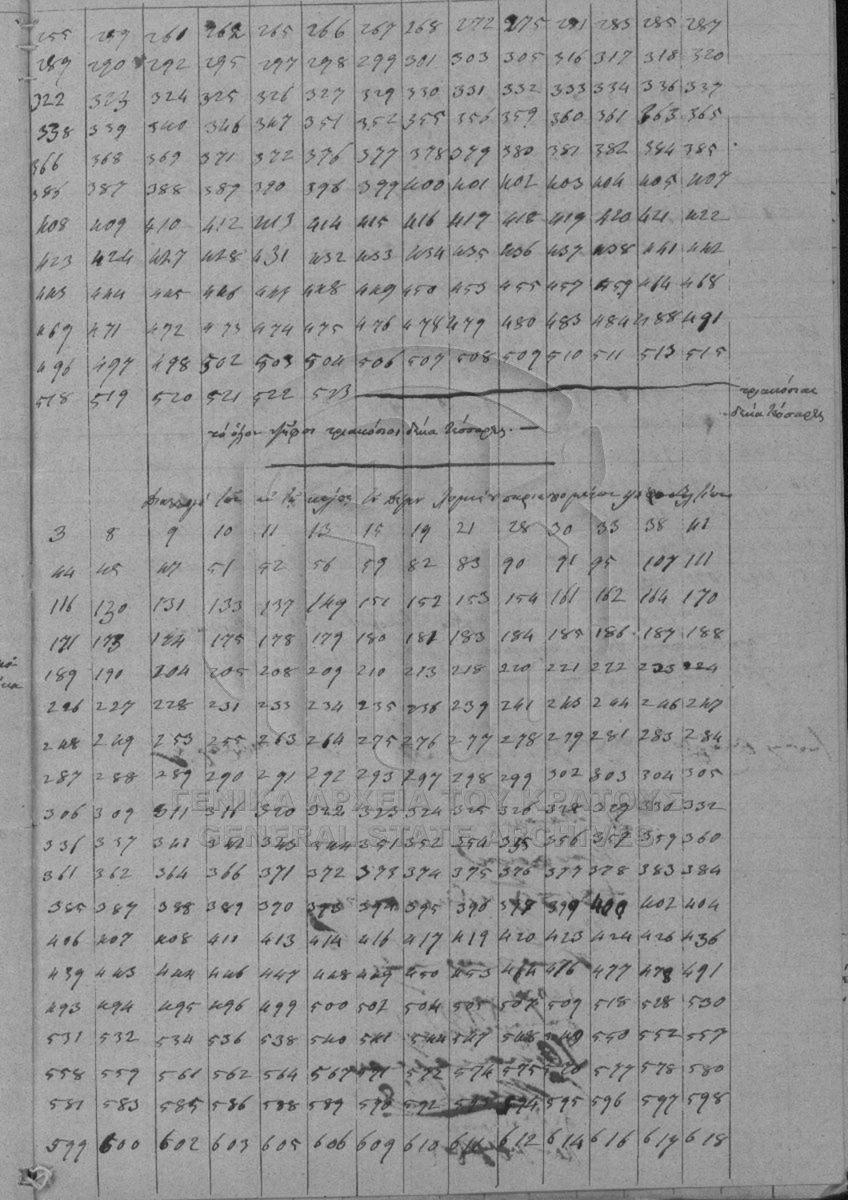 255 259 260 262 265 266 267 268 272 275 281 283 285 287
289 290 292 295 297 298 299 301 303 305 316 317 318 320
322 323 324 325 326 327 329 330 331 332 333 334 336 337
338 339 340 346 347 351 352 355 356 359 360 361 363 365
366 368 369 371 372 376 377 378 379 380 381 382 384 385
386 387 388 389 390 396 399 400 401 402 403 404 405 407
408 409 410 412 413 414 415 416 417 418 419 420 421 422
423 424 427 428 431 432 433 434 435 436 437 438 441 442
443 444 445 446 447 448 449 450 453 455 457 459 464 468
469 471 472 473 474 475 476 478 479 480 483 484 488 491
496 497 498 502 503 504 506 507 508 509 510 511 513 515
518 519 520 521 522 523 τριακόσιαι
δέκα τέσσαρες
τό όλον ψήφοι τριακόσιοι δέκα τέσσαρες.
3 8 9 10 11 13 15 19 21 28 30 33 38 41
44 45 47 51 52 56 59 82 83 90 91 95 107 111
116 130 131 133 137 149 151 152 153 154 161 162 164 170
171 173 174 175 178 179 180 181 183 184 185 186 187 188
189 190 204 205 208 209 210 213 218 220 221 222 223 224
226 227 228 231 233 234 235 236 239 241 243 244 246 247
248 249 253 255 263 264 275 276 277 278 279 281 283 284
287 288 289 290 291 292 293 297 298 299 302 303 304 305
ΓΕΝΙΚΑ ΑΡΧΕΙΑ ΤΟΥ ΚΡΑΤΟΥΣ
306 309 311 316 320 322 323 324 325 326 328 329 330 332
GENERAL STATE ARCHIVES
336 337 341 342 343 344 351 352 354 355 356 357 359 360
361 362 364 366 371 372 373 374 375 376 377 378 383 384
385 387 388 389 390 393 394 395 396 398 399 400 402 404
406 407 408 411 413 414 416 417 419 420 423 424 426 436
439 443 444 446 447 448 449 450 453 464 476 477 478 491
493 494 495 496 499 500 502 504 505 507 509 518 528 530
531 532 534 536 538 540 541 544 547 548 549 550 552 557
558 559 561 562 564 567 571 572 574 575 577 578 580
581 583 585 586 588 589 590 592 594 595 596 597 598
599 600 602 603 605 606 609 610 611 612 614 616 617 618